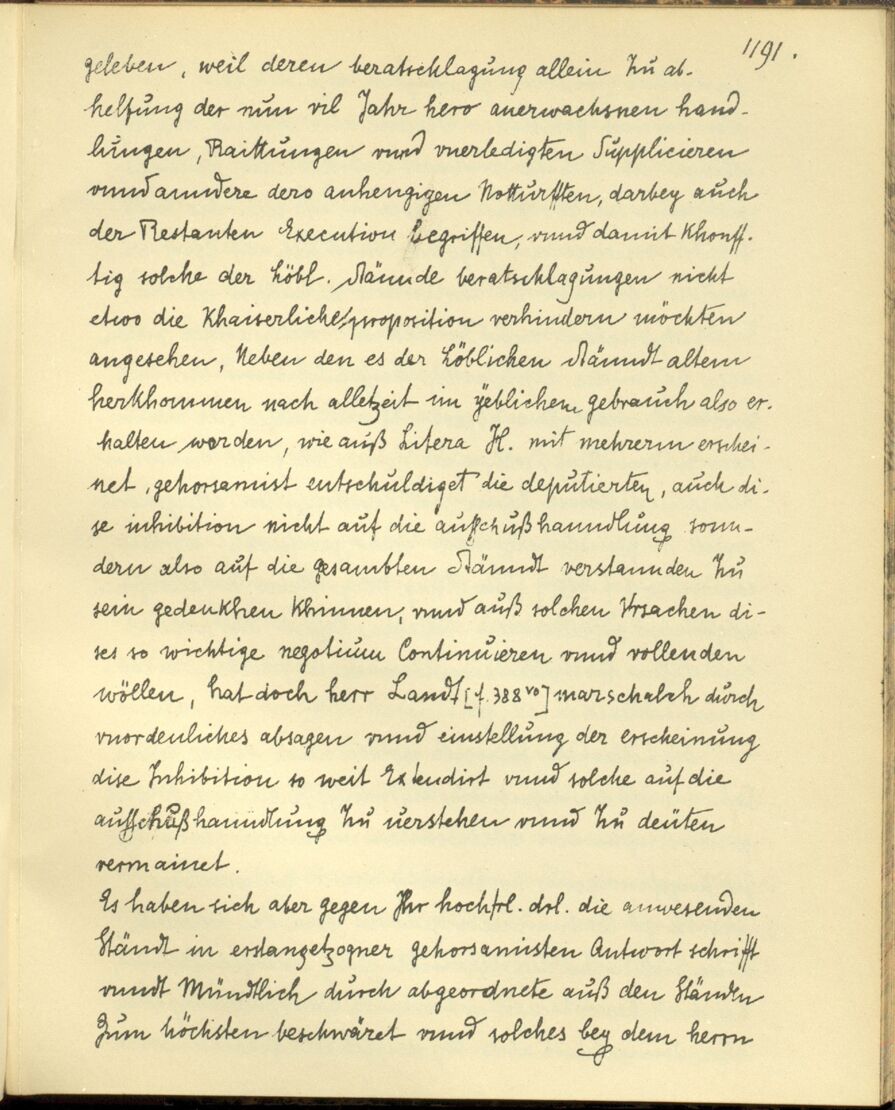 1191.
geleben, weil deren beratschlagung allein zu ab-
helfung der nun vil Jahr hero auerwachsnen hand-
lungen, Raittungen vnnd vnerledigten Supplicieren
vnnd anndere dero anhengigen Notturfften, darbey auch
der Restanten Execution begriffen, vnnd damit khonff-
tig solche der Löbl. Stännde beratschlagungen nicht
etwo die Khaiserliche proposition verhindern möchten
angesehen, Neben den es der Löblichen Stänndt altem
herkhommen nach alletzeit im yeblichem gebrauch also er-
halten worden, wie auß Litera H. mit mehrerm erschei-
net, gehorsamist entschuldiget die deputierten, auch di-
se inhibition nicht auf die außschußhanndlung sonn-
dern also auf die gesambten Stänndt verstannden zu
sein gedenkhen khinnen, vnnd auß solchen Vrsachen di-
ses so wichtige negotium Continuieren vnnd vollenden
wöllen, hat doch herr Landt[f. 388 vo]marschalch durch
vnordenliches absagen vnnd einstellung der erscheinung
dise Inhibition so weit Extendirt vnnd solche auf die
außschußhanndlung zu uerstehen vnnd zu deüten
vermainet.
Es haben sich aber gegen Ihr hochfrl. drl. die anwesenden
Ständt in erstangetzogner gehorsamisten Antwort schrifft
vnndt Mündtlich durch abgeordnete auß den Ständen
Zum höchsten beschwäret vnnd solches bey dem herrn